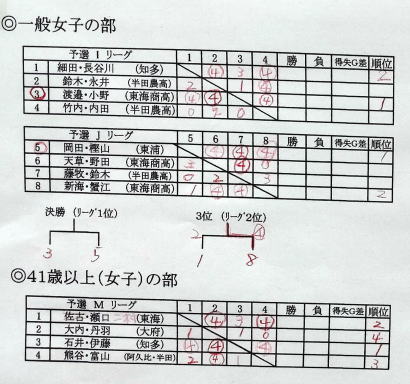 ◎一般女子の部
予選 I リーグ 1 2 3 4 勝 負 得失G差 順位
1 細田・長谷川 (知多) ④ 3 ④ 2
2 鈴木・永井 (半田農高) 2 1 ④
③ 渡邉・小野 (東海商高) ④ ④ ④ 1
4 竹内・内田 (半田農高) 0 2 0
予選 J リーグ 5 6 7 8 勝 負 得失G差 順位
⑤ 岡田・樫山 (東浦) ④ ④ ④ 1
6 天草・野田 (東海商高) 3 ④ 0
7 藤牧・鈴木 (半田農高) 0 2 3
8 新海・蟹江 (東海商高) 1 ④ ④ 2
決勝 (リーグ1位) 3位 (リーグ2位)
2 ④
3 5 1 8
◎41歳以上(女子)の部
予選 M リーグ 1 2 3 4 勝 負 得失G差 順位
1 佐古・瀬口 (東海) ④ 3 ④ 2
2 大内・丹羽 (大府) 1 1 0 4
3 石井・伊藤 (知多) ④ ④ ④ 1
4 熊谷・富山 (阿久比・半田) 2 ④ 1 3